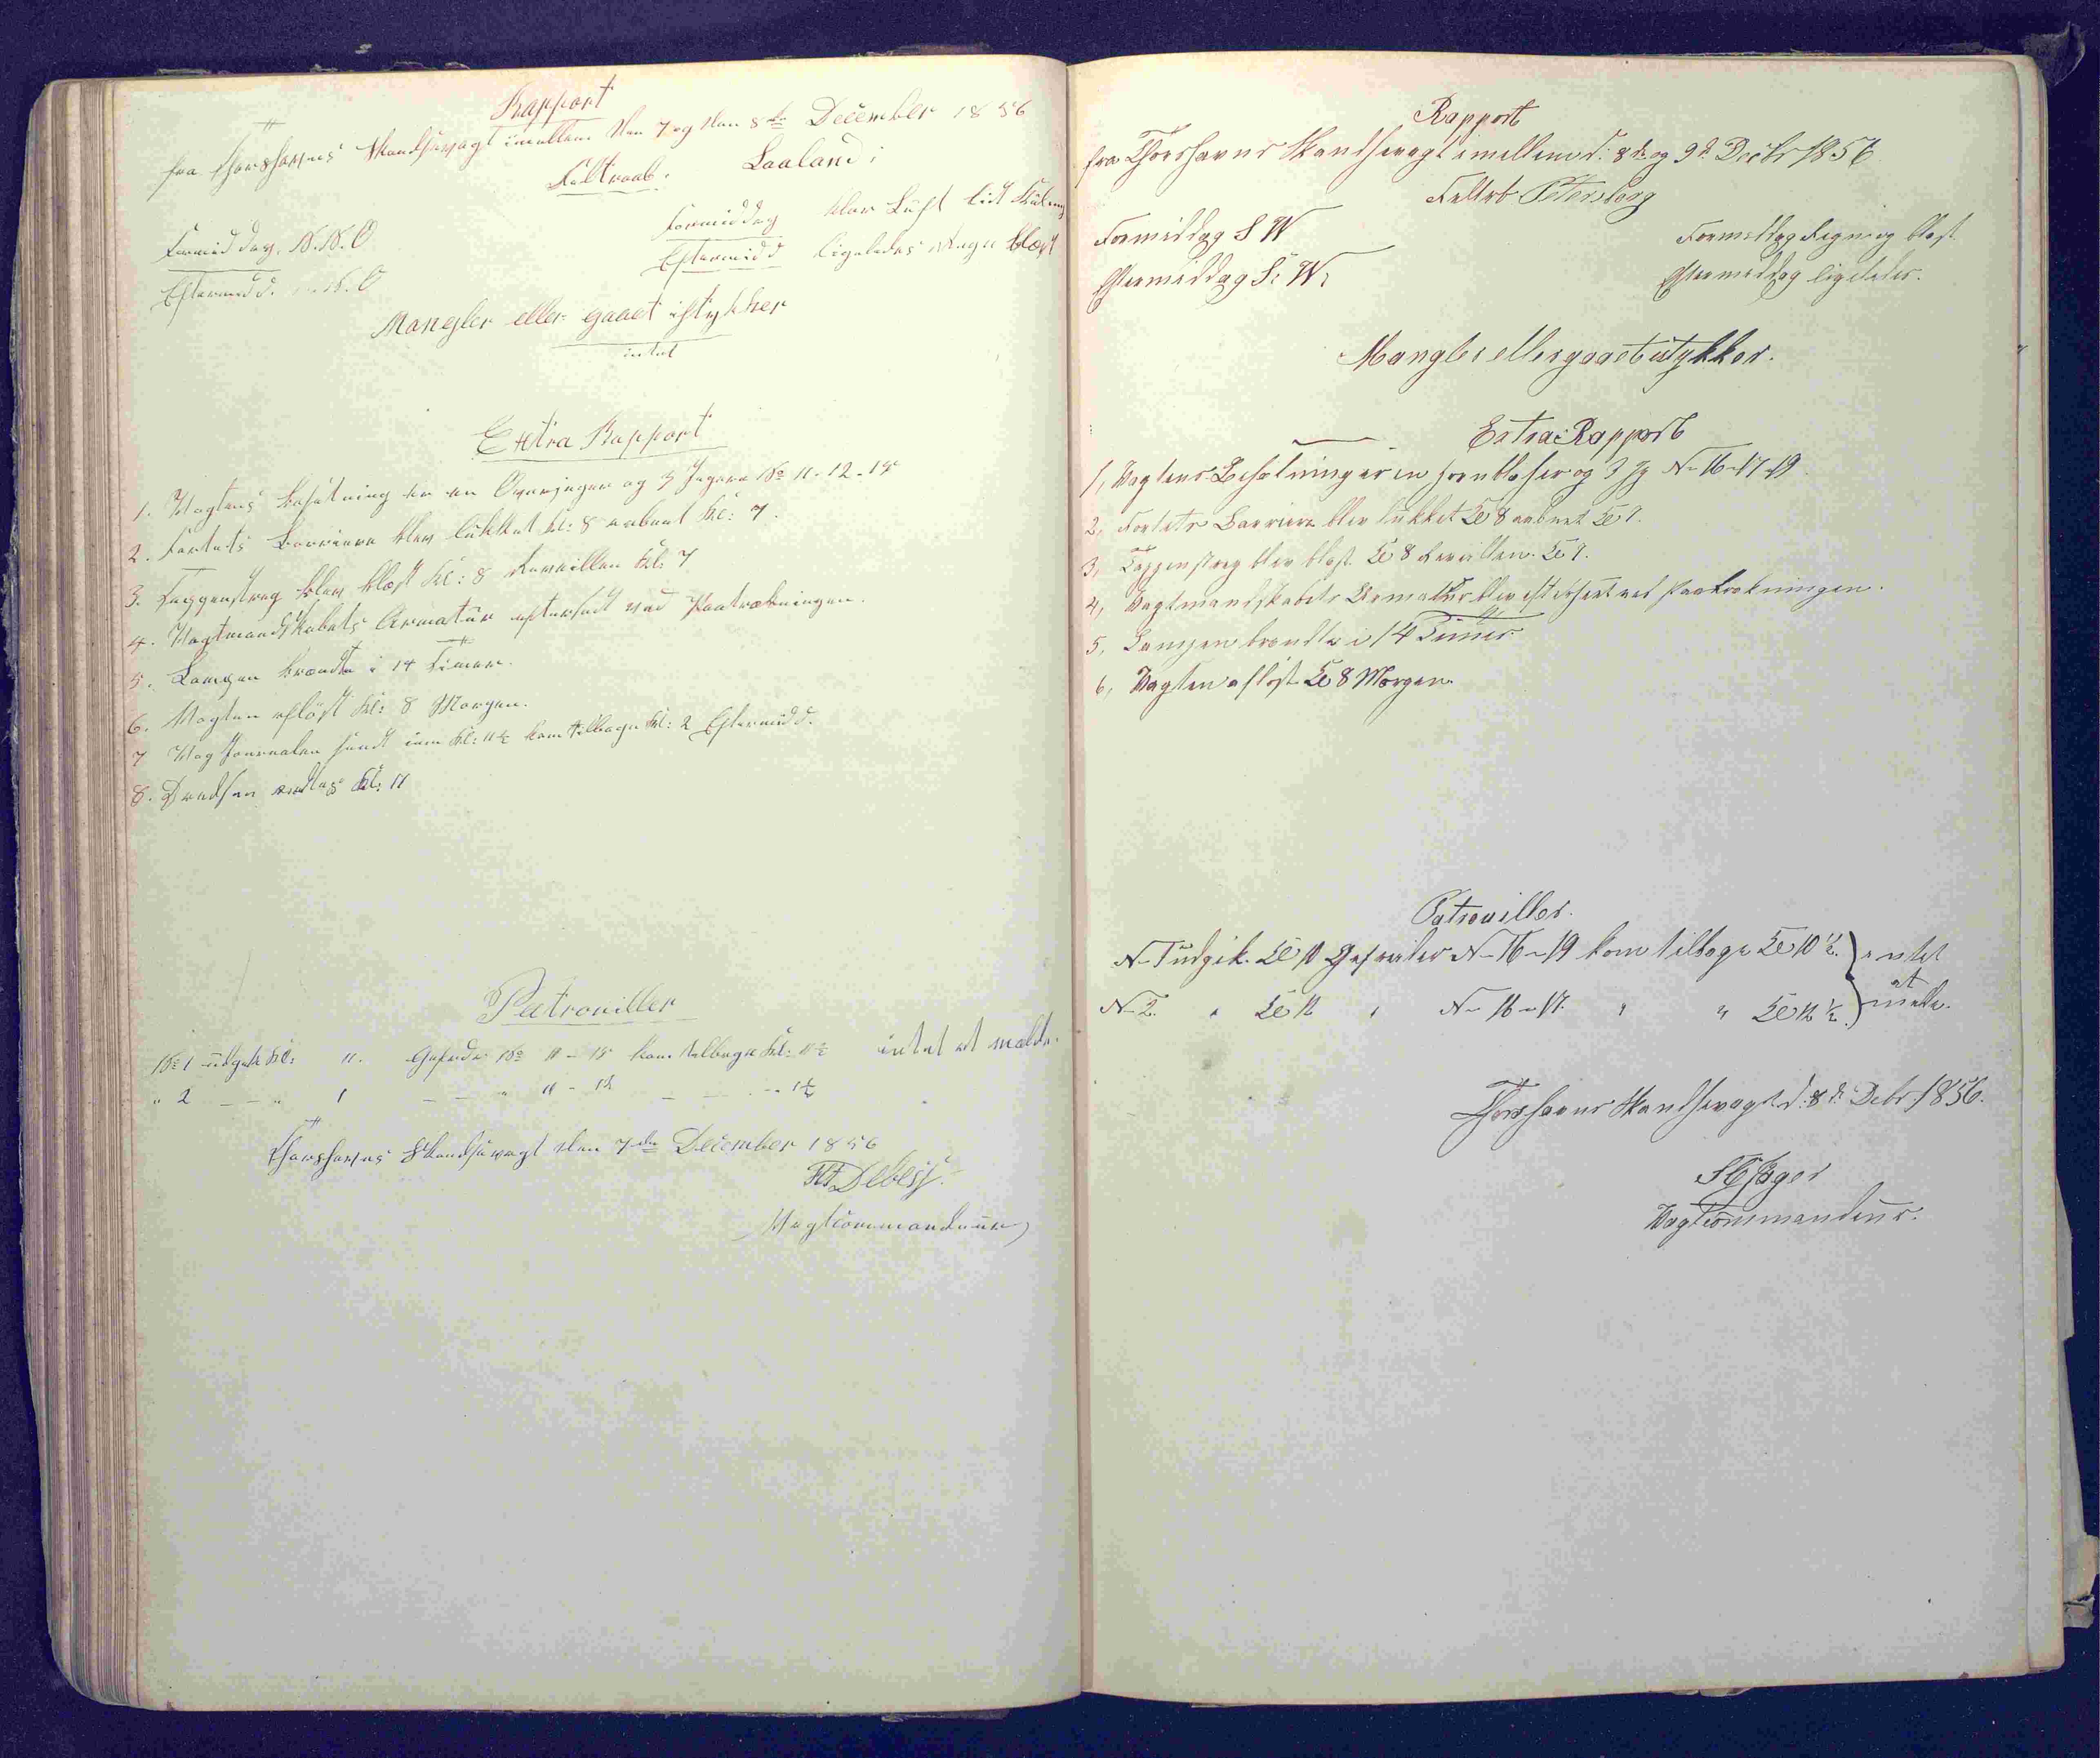 Rapport
fra Thorshavns Skandsevagt imellem den 7 og den 8de December 1856
Feltraab. Laaland.
Formiddag. N.N.O Formiddag klar Luft lidt Kuling
Eftermidd. N.O Eftermidd ligeledes blæst
Mangler eller gaaet istykker
intet
Extra Rapport
1. Vagtens besætning er en Overjæger og 3 Jægere No 11-12-15
2. Fortets Barriere blev lukket kl: 8 aabnet kl: 7.
3. Tappenstreg blev blæst kl: 8 Reveillen kl: 7
4. Vagtmandskabets Armatur efterseet ved Paatrædningen.
5. Lampen brændte i 14 Timer.
6. Vagten afløst kl: 8 Morgen.
7 Vagtjournalen sendt ind kl: 11½ kom tilbage kl: 2 Eftermidd.
8. kl: 11
Patrouiller
No 1 udgik kl: 11. Gefreder No 11 - 15 kom tilbage kl: 11½ intet at melde.
" 2 — " 1 — — " 11 - 12 — — - 1½
Thorshavns Skandsevagt den 7de December 1856
Debess.
Vagtcommandeur
Rapport
fra Thorshavns Skandsevagt imellem d: 8de og 9d Decbr 1856
Feltrb Petersborg
Formiddag S W Formiddag Regn og blæst.
Eftermiddag S: W: Eftermiddag ligeledes.
Mangler eller gaaet istykker.
Extra Rapport
1, Vagtens Besætning er en hornblæser og 3 Jg N- 16-17-19.
2, Fortets Barriere blev lukket Kl 8 aabnet Kl 7.
3, Tappenstreg blev blæst. Kl 8 Revellien. Kl 7.
4, Vagtmandskabets Armatur blev efterseet ved Paatrædningen.
5, Lampen brændte i 14 Timer
6, Vagten afløst Kl 8 Morgen.
Patrouiller.
N- 1 udgik. Kl 10 Gefreider N- 16-19 kom tilbage Kl 10½. intet
at
N- 2. " Kl 12 " N- 16-17. " " Kl 12½. melde.
Thorshavns Skandsevagt d: 8d. Debr. 1856.
Jæger
Vagtcommandeur.